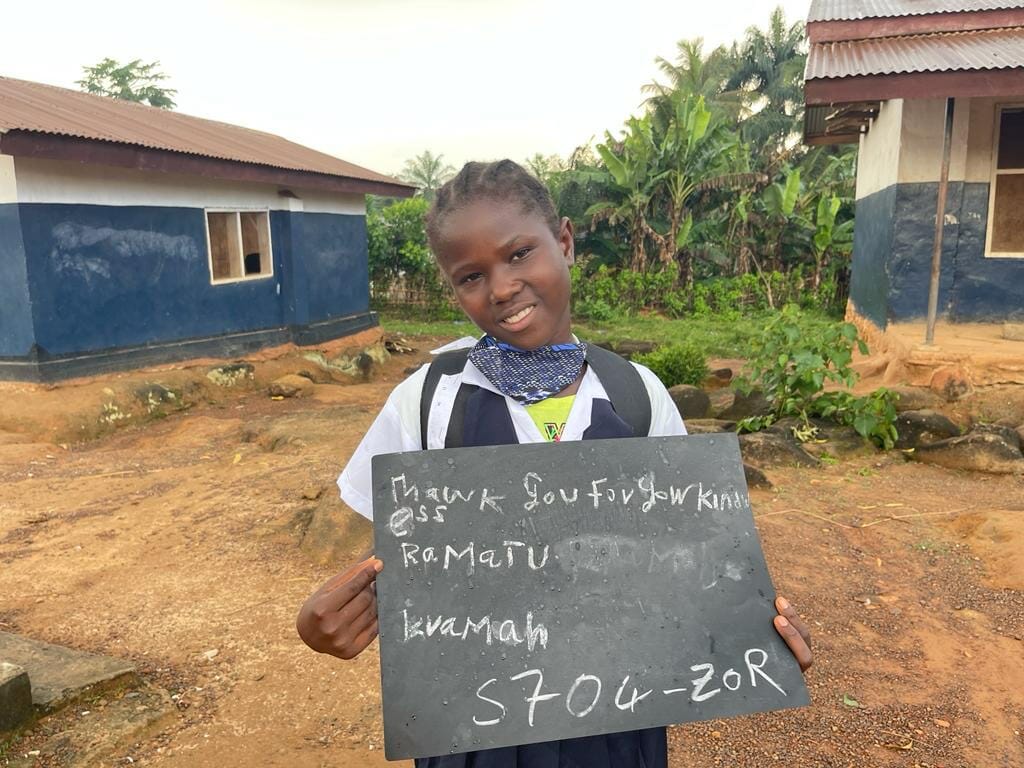 Thawk you for your kind
ess
RaMaTU
kvamah
S704-ZOR